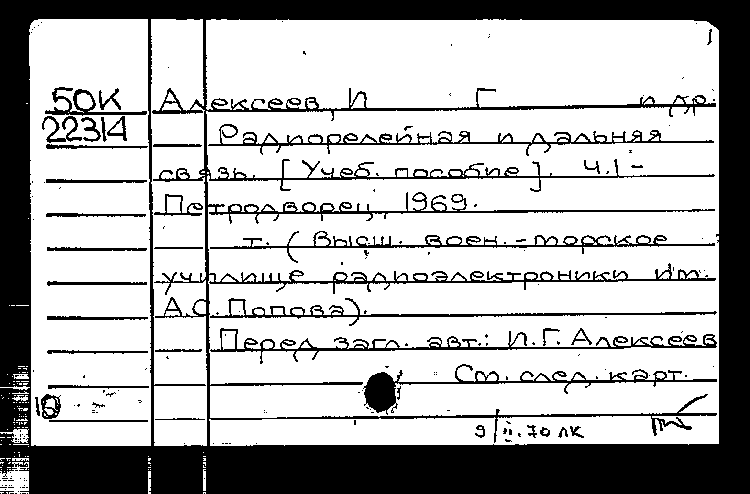 1
50К Алексеев, И Г и др.
22314 Радиорелейная и дальняя
связь. [Учеб. пособие]. Ч.1-
Петродворец, 1969.
т. (Высш. воен.-морское
училище радиоэлектроники им.
А.С. Попова).
Перед загл. авт.: И.Г. Алексеев
См. след. карт.
10
9/II.70 ЛК